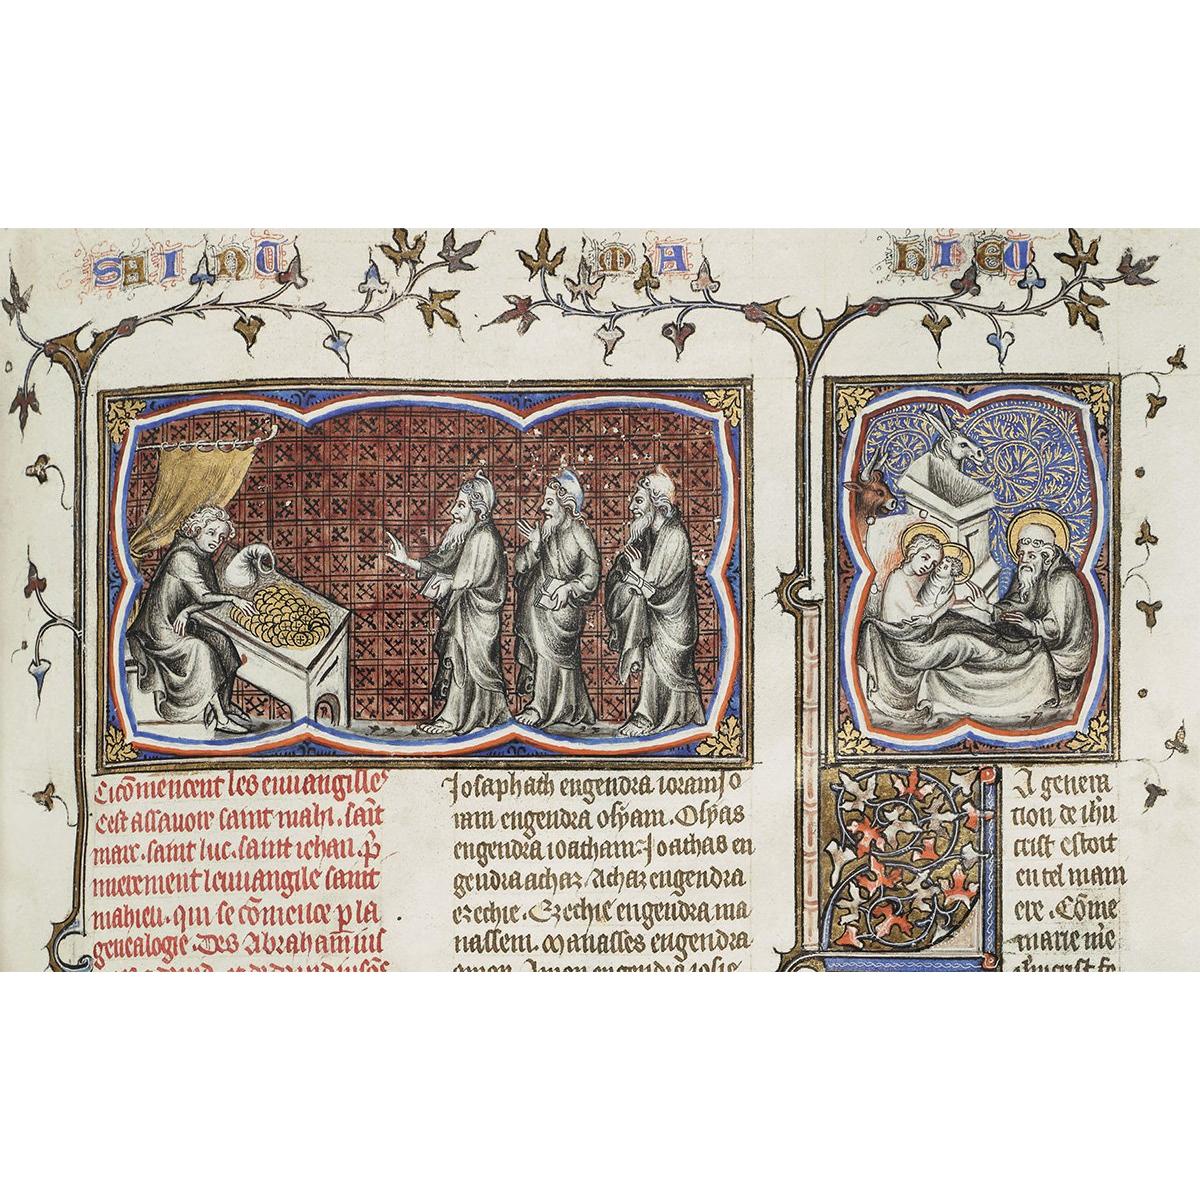 SAINT MA HIEU
Ci cōmencent les euuangilles
cest assauoir saint mahi. sait
marc. saint luc. saint iehan. p̄
mierement leuuangile saint
mahieu. qui se cōmence p la
genealogie. Des Abraham ius
Josaphath engendra ioram Jo
ram engendra osyam. Osyas
engendra ioatham. Joathas en
gendra achaz. Achaz engendra
ezechie. Ezechie engendra ma
nassem. Manasses engendra
amon. Amon engendra iosie.
LA genera
tion de ihū
crist estoit
en tel mam
ere. Cōme
marie